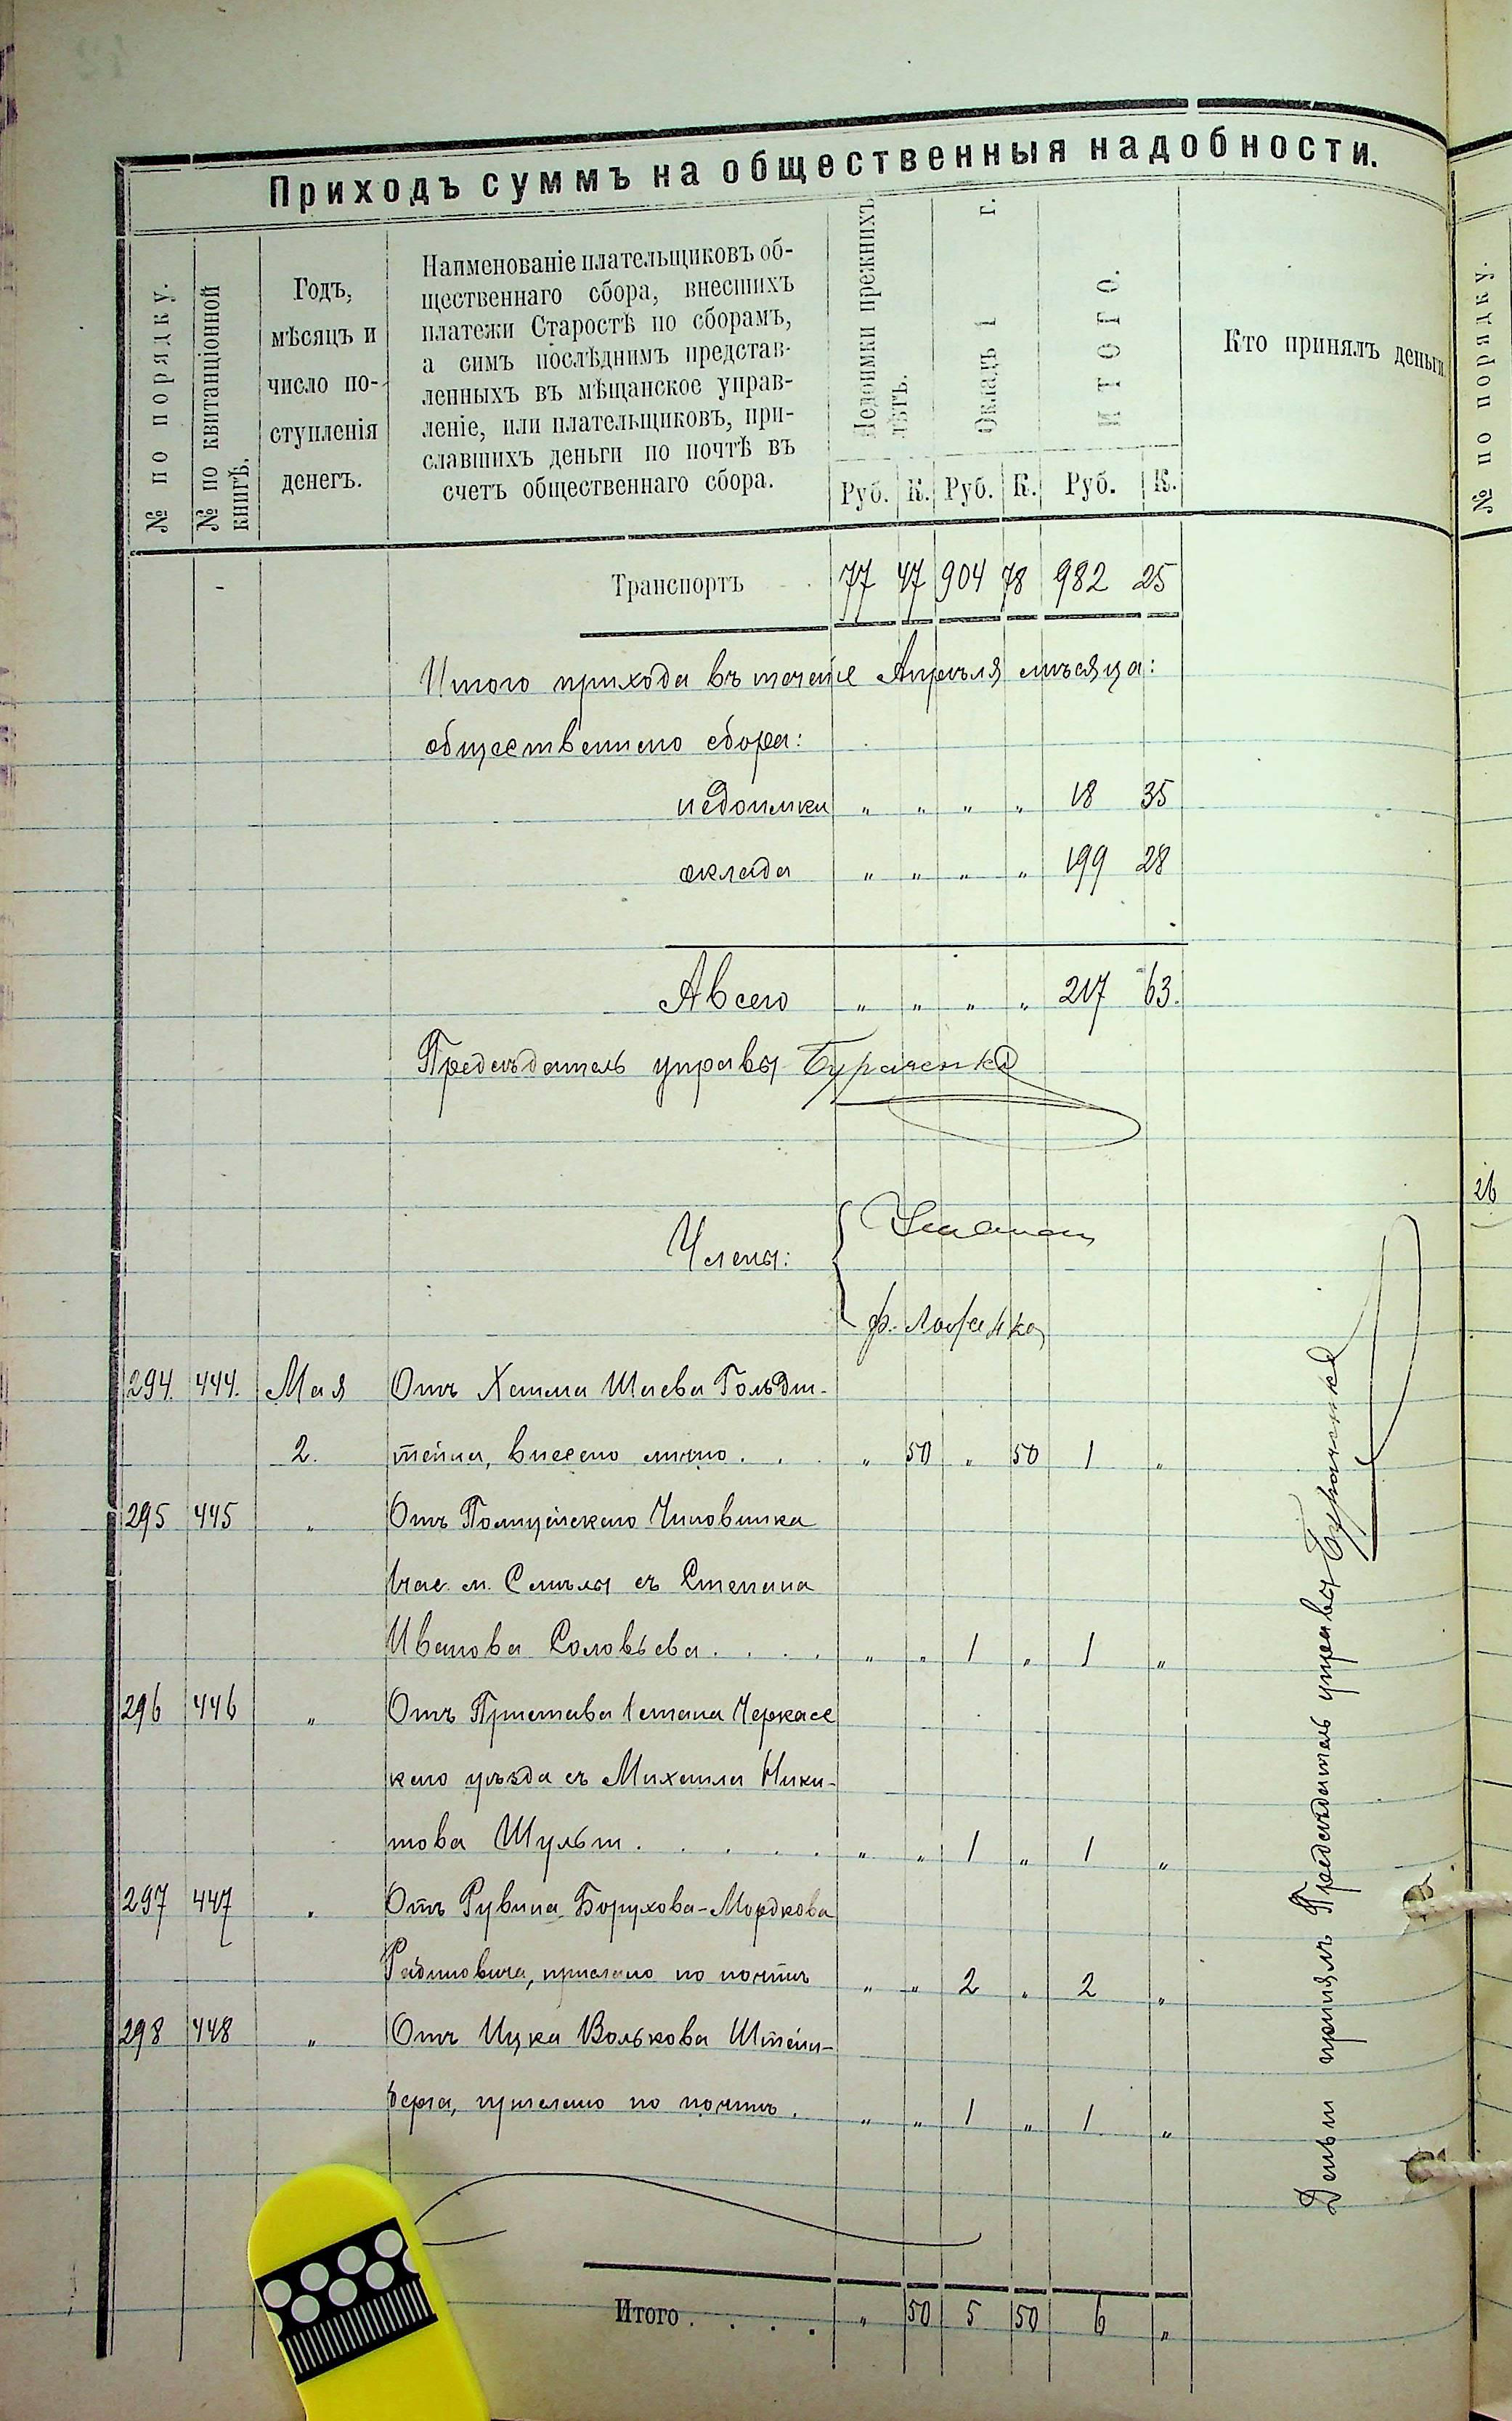 Приходъ суммъ на общественныя надобности.
№ по порядку.
№ по квитанціонной
книгѣ.
Годъ,
мѣсяцъ и
число по-
ступленія
денегъ.
Наименованіе плательщиковъ об-
щественнаго сбора, внесшихъ
платежи Старостѣ по сборамъ,
а симъ послѣднимъ представ-
ленныхъ въ мѣщанское управ-
леніе, или плательщиковъ, при-
славшихъ деньги по почтѣ въ
счетъ общественнаго сбора.
Недоимки прежнихъ
лѣтъ.
Окладъ 1 г.
ИТОГО.
Руб. К. Руб. К. Руб. К.
Кто принялъ деньги
№ по порядку.
Транспортъ 77 47 904 78 982 25
Итого прихода въ теченіе Апрѣля мѣсяца:
общественнаго сбора:
недоимки „ „ „ „ 18 35
оклада „ „ „ „ 199 28
А всего „ „ „ „ 217 63.
Предсѣдатель управы Бураченко
26
Члены:
Ф. Лофенко
294. 444. Мая Отъ Хаима Шаева Гольдш-
2. тейна, внесено лично . . . „ 50 „ 50 1 „
295 445 „ Отъ Полицейскаго Чиновника
1 час. м. Смѣлы съ Степана
Иванова Соловьева . . . . „ „ 1 „ 1 „
296 446 „ Отъ Пристава 1 стана Черкасс
каго уѣзда съ Михаила Ники-
това Шульги . . . . . „ „ 1 „ 1 „
297 447 „ Отъ Рувина Борухова-Мордкова
Рабиновича, прислано по почтѣ „ „ 2 „ 2 „
298 448 „ Отъ Ицка Волькова Штейн-
берга, прислано по почтѣ . „ „ 1 „ 1 „
Итого . . . . „ 50 5 50 6 „
Деньги принялъ Предсѣдатель управы Бураченко